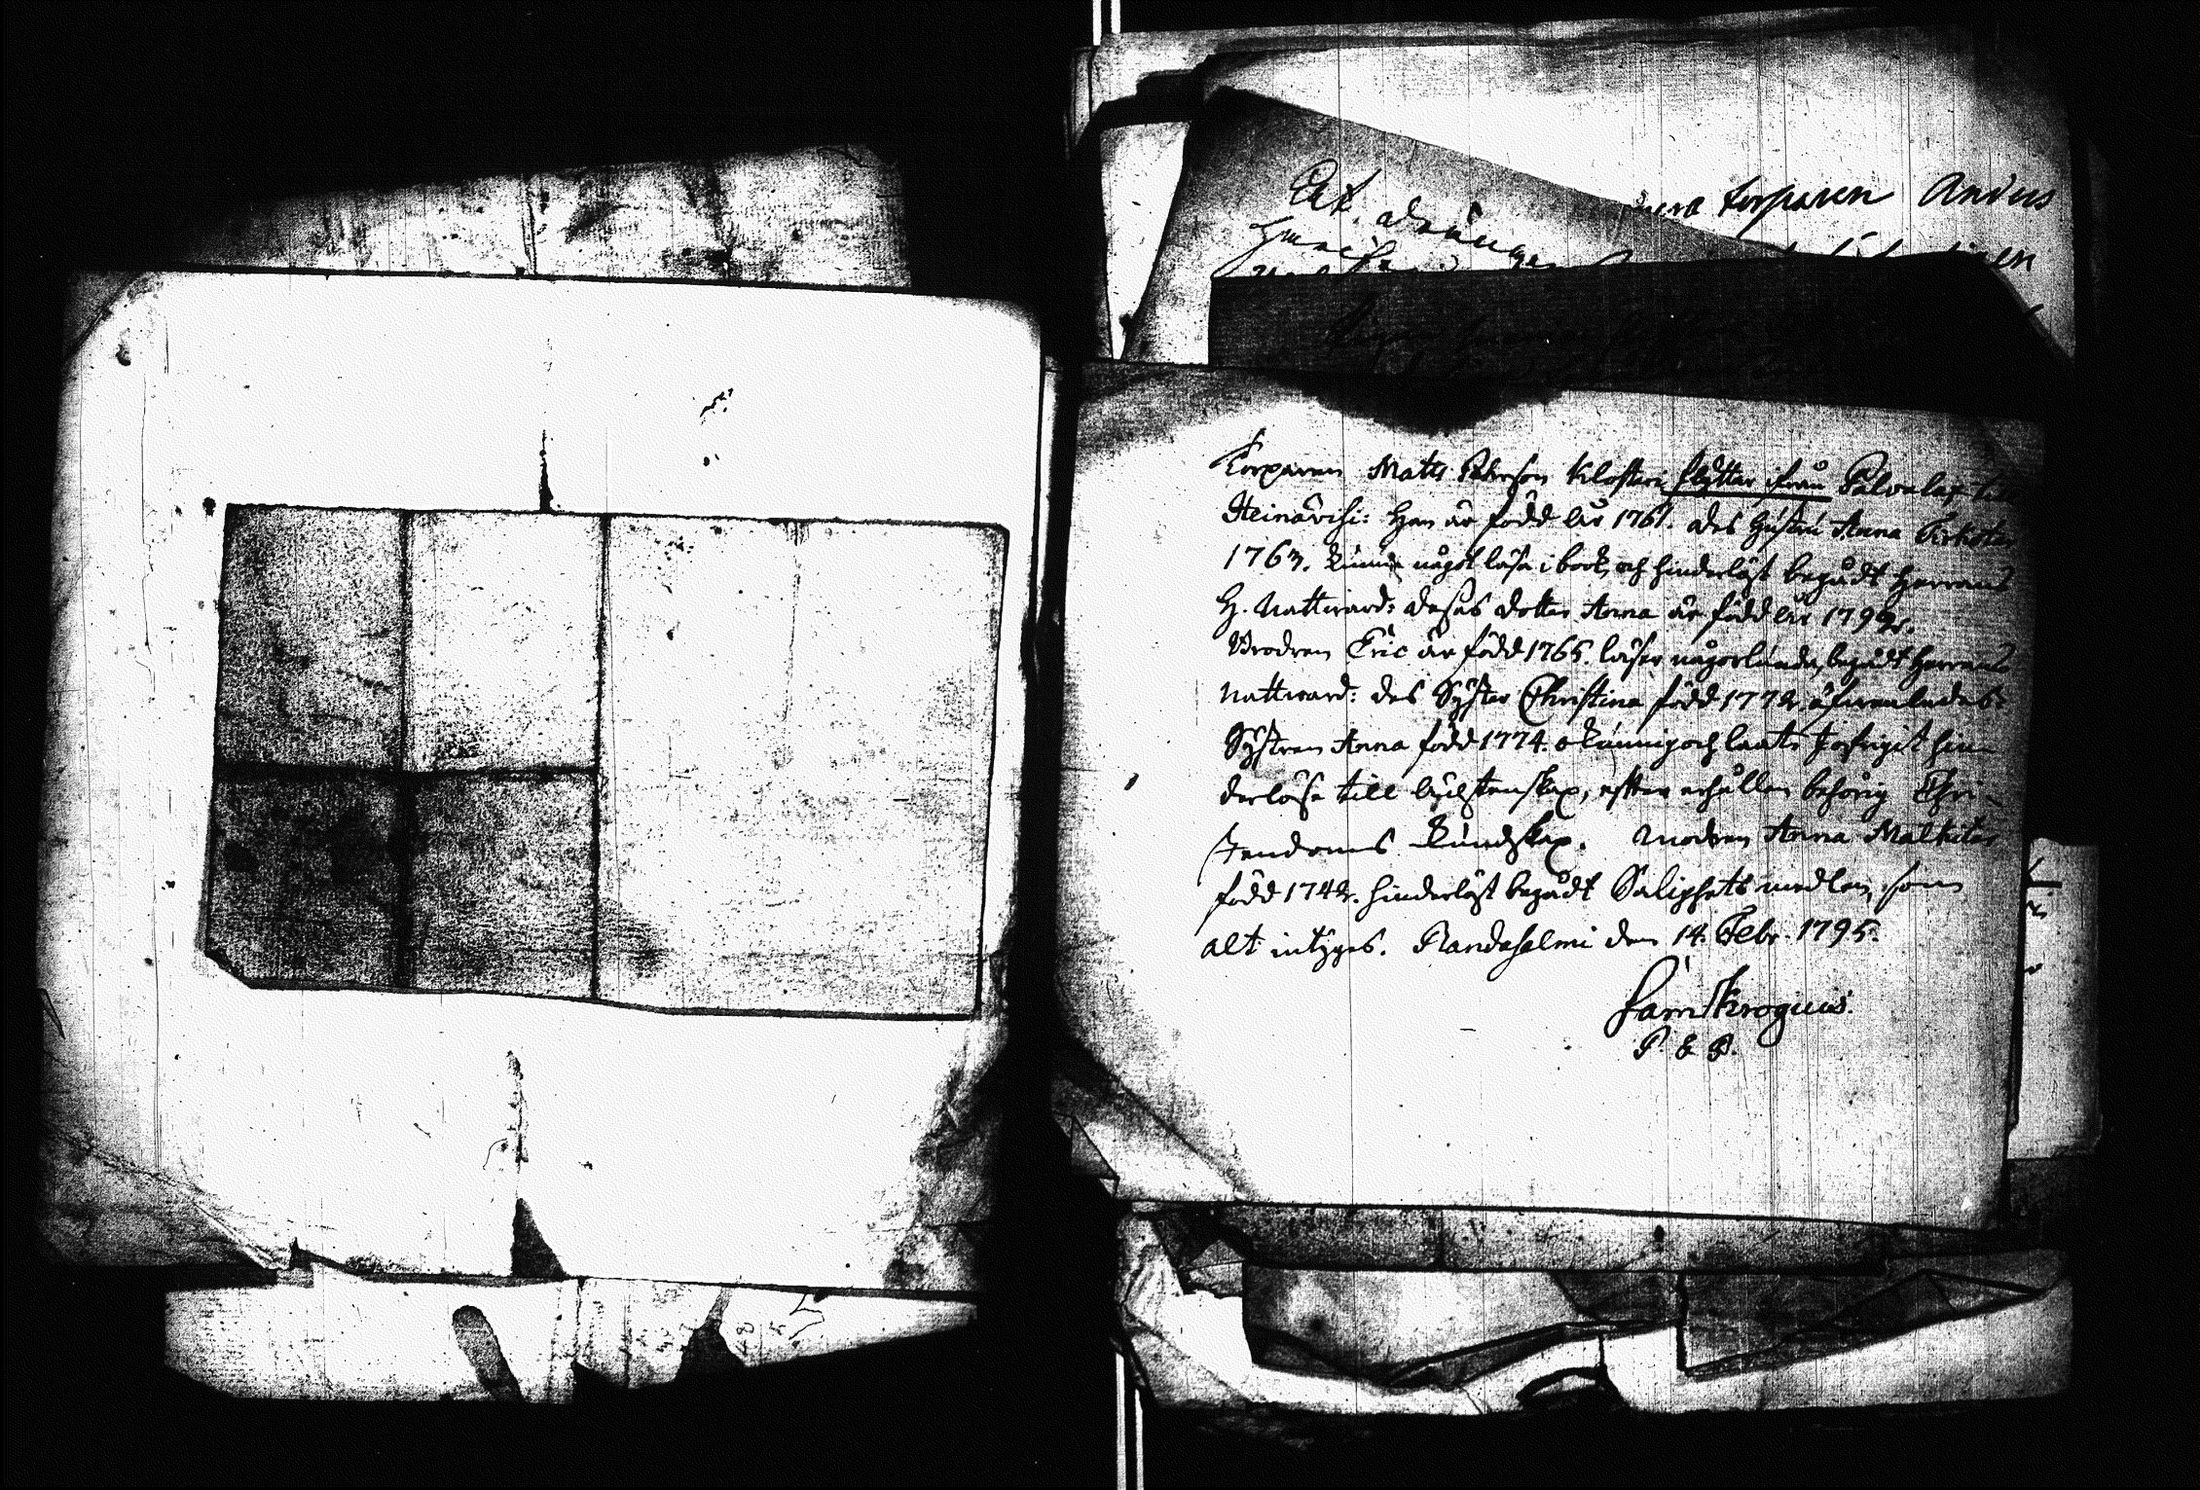 Att drängen torparen Anders
Torparen Matts Peterson Klosteri flyttar ifrån Palvalax till
Heinävesi: Han är född År 1761. Des Hustru Anna Tirkoten
1763. kunna något läsa i book, och hinderlöst begådt Herrans
H. Nattward: deras dotter Anna är född År 1792.
Brodren Eric är född 1765. läser någorlunda, begådt Herrans
Nattward: des Syster Christina född 1772, äfwenledes:
Systren Anna född 1774. okunnig och laat: hin-
derlöse till ächtenskap, efter erhållen behörig Chri-
stendoms kundskap. Modren Anna Malkiten
född 1742. hinderlöst begådt Salighets medlen, som
alt intygas. Randasalmi den 14. Febr. 1795.
Sam Krogius.
P. & P.